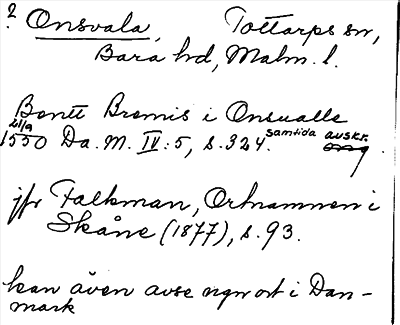 ? Onsvala, Tottarps sn,
Bara hd, Malm. l.
Bentt Bremis i Onsualle
21/9 1550 Da. M. IV: 5, s. 324. samtida avskr.
jfr Falkman, Ortnamnen i
Skåne (1877), s. 93.
kan även avse ngn ort i Dan-
mark